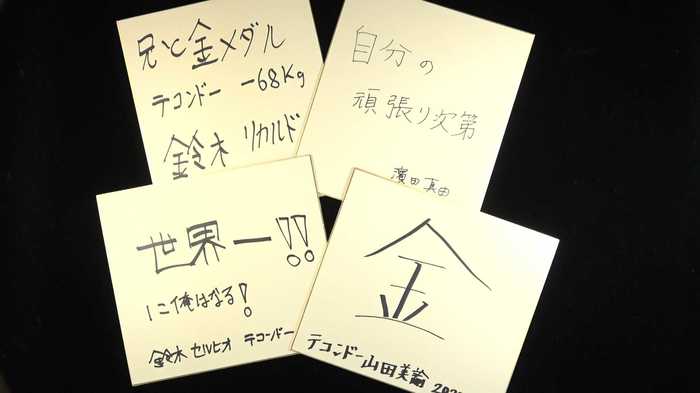 兄と金メダル
テコンドー -68Kg
鈴木 リカルド
自分の
頑張り次第
濱田 真由
世界一!!
に俺はなる!
鈴木 セルヒオ テコンドー
金
テコンドー山田美諭 202